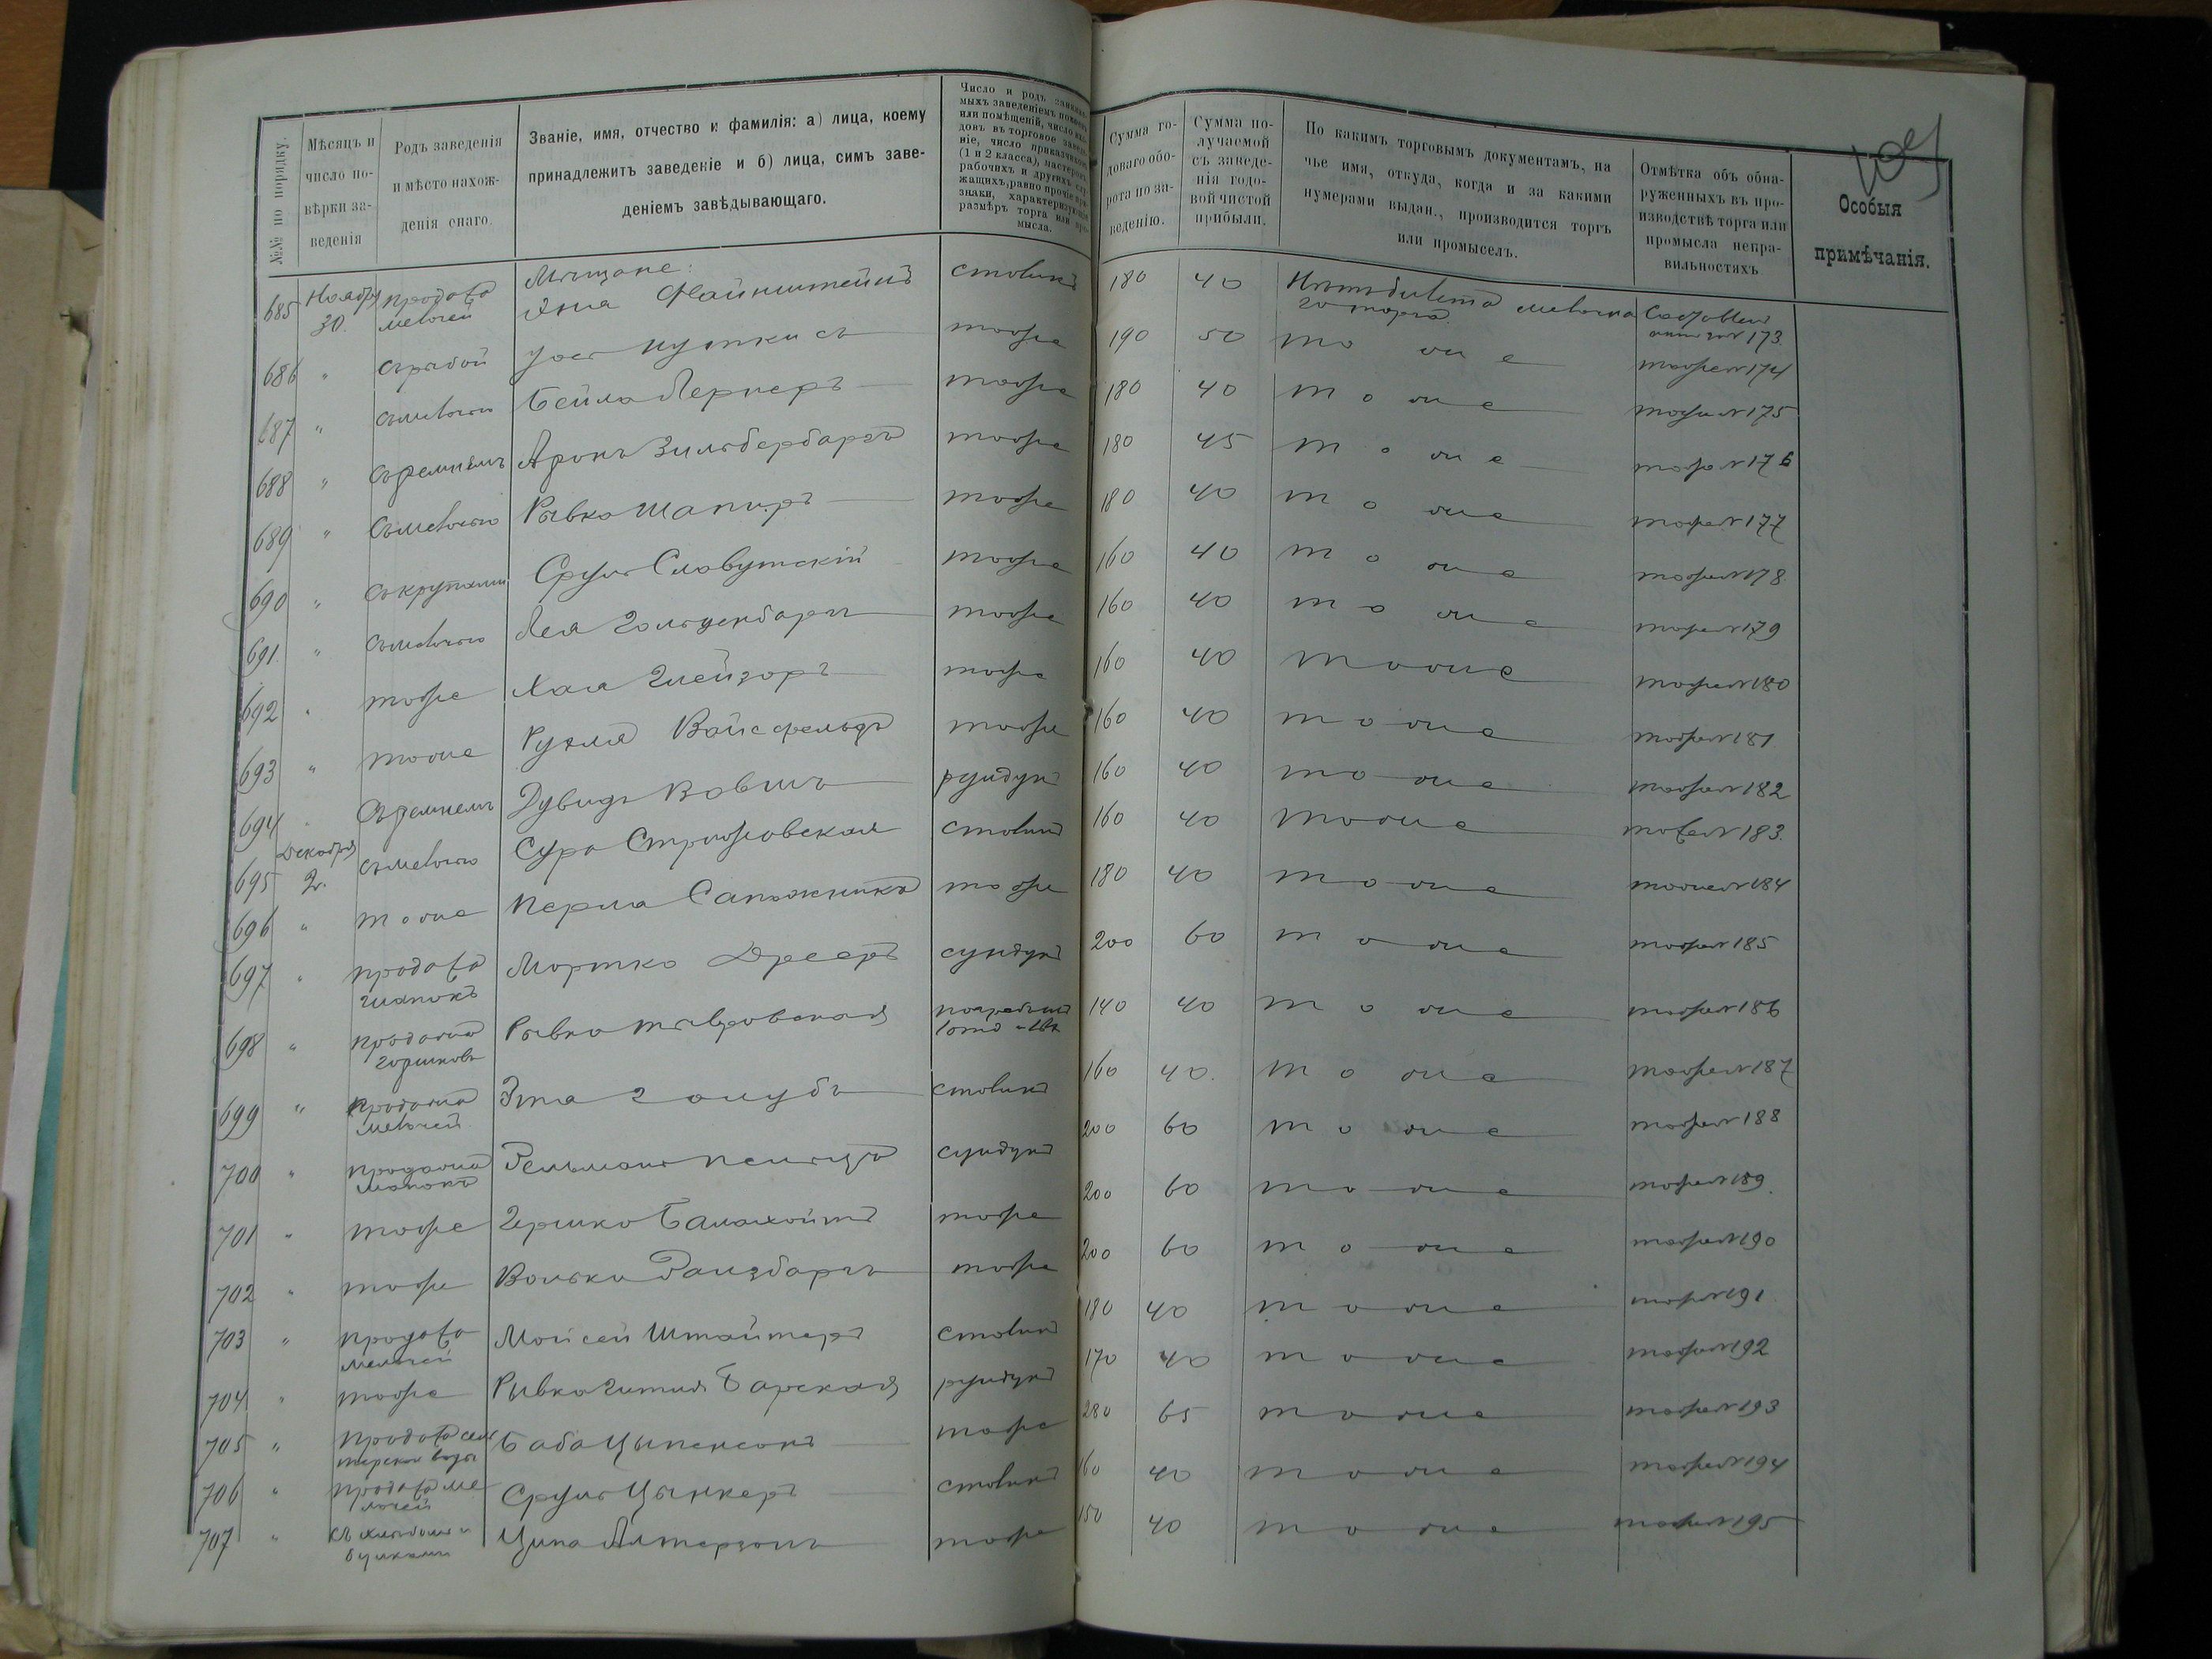 109
№№ по порядку.
Мѣсяцъ и число повѣрки заведенія
Родъ заведенія и мѣсто нахожденія онаго.
Званіе, имя, отчество и фамилія: а) лица, коему
принадлежитъ заведеніе и б) лица, симъ заве-
деніемъ завѣдывающаго.
Число и родъ
Сумма го-
доваго обо-
рота по за-
веденію.
Сумма по-
лучаемой
съ заведе-
нія годо-
вой чистой
прибыли.
По какимъ торговымъ документамъ, на
чье имя, откуда, когда и за какими
нумерами выдан., производится торгъ
или промыселъ.
Отмѣтка объ обна-
руженныхъ въ про-
изводствѣ торга или
промысла непра-
вильностяхъ
Особыя
примѣчанія.
Мѣщане:
685 Ноября 30. продажа мелочей Файнштейнъ столикъ 180 40 Нѣтъ билета мелочнаго торга. Составленъ актъ за № 173.
686 " съ рыбой тоже 190 50 тоже тоже № 174
687 " съ мелочью Бейла Лернеръ тоже 180 40 тоже тоже № 175
688 " съ ремнемъ Аронъ Зильбербаргъ тоже 180 45 тоже тоже № 176
689 " съ мелочью Рывка Шапиръ тоже 180 40 тоже тоже № 177
690 " съ крупами Сруль Славутскій тоже 160 40 тоже тоже № 178
691 " съ мелочью Лея Гольденбаргъ тоже 160 40 тоже тоже № 179
692 " тоже Хая Глейзеръ тоже 160 40 тоже тоже № 180
693 " тоже Рухля Вайсфельдъ тоже 160 40 тоже тоже № 181
694 " съ ремнемъ Дувидъ рундукъ 160 40 тоже тоже № 182
695 Декабря 2. съ мелочью Сура столикъ 160 40 тоже тоже № 183
696 " тоже Перля Сапожникъ тоже 180 40 тоже тоже № 184
697 " продажа шапокъ Мортко Дрееръ сундукъ 200 60 тоже тоже № 185
698 " продажа горшковъ Рывка 140 40 тоже тоже № 186
699 " продажа мелочей Эта Голубъ столикъ 160 40. тоже тоже № 187
700 " продажа шапокъ Зельманъ сундукъ 200 60 тоже тоже № 188
701 " тоже Гершко Балахойтъ тоже 200 60 тоже тоже № 189
702 " тоже Волько тоже 200 60 тоже тоже № 190
703 " продажа мелочей Мойсей столикъ 180 40 тоже тоже № 191
704 " тоже Рывка Гитля Барская рундукъ 170 40 тоже тоже № 192
705 " продажа сельтерской воды Баба Цыпенсонъ тоже 280 65 тоже тоже № 193
706 " продажа мелочей Сруль Цынкеръ столикъ 160 40 тоже тоже № 194
707 " съ хлѣбомъ и бубликами Ципа Альтерзонъ тоже 150 40 тоже тоже № 195